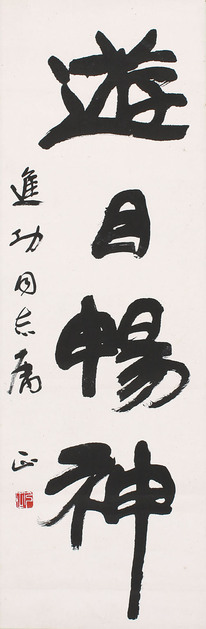 遊目暢神
進功同志属
正